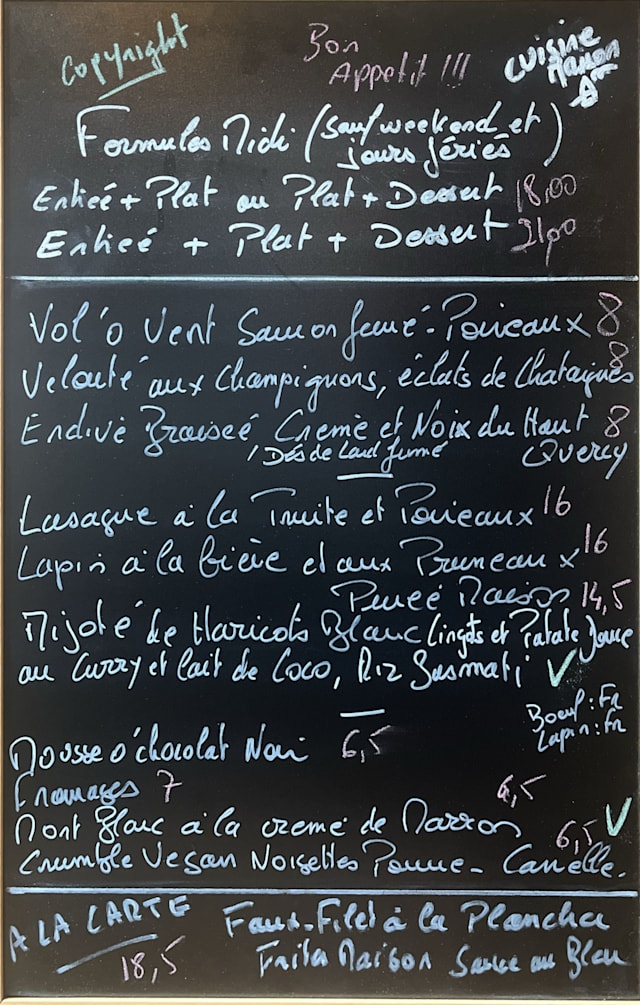 Copyright
Bon
Appetit !!!
Cuisine
Maison
Formules Midi (sauf weekend et
jours fériés)
Entrée + Plat ou Plat + Dessert 18,00
Entrée + Plat + Dessert 21,00
Vol'o Vent Saumon fumé - Poireaux 8
Velouté aux Champignons, éclats de Chataignes 8
Endive Braiseé Creme et Noix du Haut 8
/Dés de Lard fumé Quercy
Lasagne a la Truite et Poireaux 16
Lapin a la bière et aux Pruneaux 16
Pureé Maison
Mijoté de Haricots Blanc Lingots et Patate Jaune 14,5
au Curry et lait de Coco, Riz Basmati ✓
Boeuf : Fr
Lapin : Fr
Mousse o'chocolat Noir 6,5
Fromages 7
Mont Blanc a la creme de Marron 6,5
Crumble Vegan Noisettes Pomme - Canelle. 6,5 ✓
A LA CARTE
18,5
Faux-Filet à la Plancha
Frites Maison Sauce au Bleu